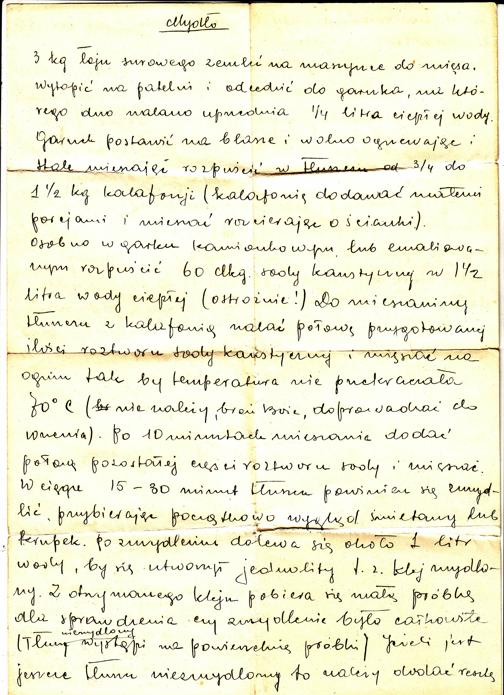 Mydło
3 kg łoju surowego zemleć na maszynce do mięsa.
Wytopić na patelni i odcedzić do garnka, na któ-
rego dno nalano uprzednio 1/4 litra ciepłej wody.
Garnek postawić na blasze i wolno ogrzewając i
stale mieszając rozpuścić w tłuszczu od 3/4 do
1 1/2 kg kalafonji (kalafonię dodawać małemi
porcjami i mieszać rozcierając o ścianki).
Osobno w garku kamionkowym lub emaliowa-
nym rozpuścić 60 dkg. sody kaustycznej w 1 1/2
litra wody ciepłej (ostrożnie!) Do mieszaniny
tłuszczu z kalafonią nalać połowę przygotowanej
ilości roztworu sody kaustycznej i mieszać na
ogniu tak by temperatura nie przekraczała
70° C (nie należy, broń Boże, doprowadzać do
wrzenia). Po 10 minutach mieszania dodać
połowę pozostałej części roztworu sody i mieszać.
W ciągu 15 - 30 minut tłuszcz powinien się zmyd-
lić, przybierając początkowo wygląd śmietany lub
krupek. Po zmydleniu dolewa się około 1 litr
wody, by się utworzył jednolity t. z. klej mydla-
ny. Z otrzymanego kleju pobiera się małą próbkę
dla sprawdzenia czy zmydlenie było całkowite
(Tłuszcz niezmydlony wystąpi na powierzchnię próbki) Jeżeli jest
jeszcze tłuszcz niezmydlony to należy dodać resztę